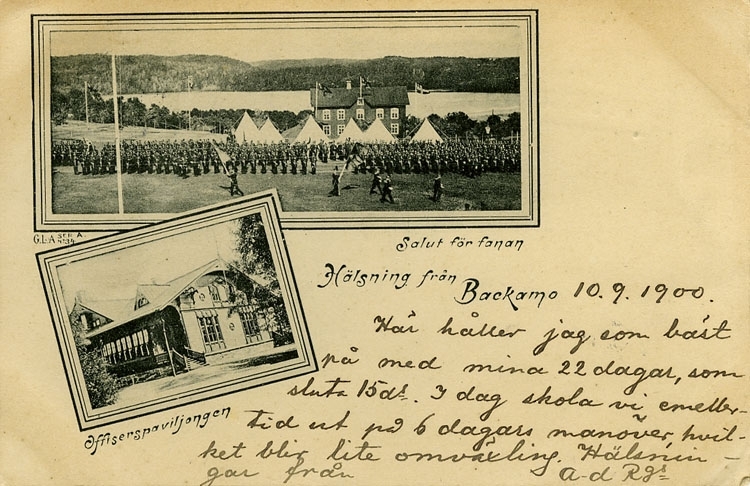 G.L.A SER. A. No 34.
Salut för fanan
Hälsning från
Backamo 10.9.1900.
Här håller jag som bäst
på med mina 22 dagar, som
sluta 15ds. I dag skola vi emeller-
tid ut på 6 dagars manöver, hvil-
ket blir lite omväxling. Hälsnin-
gar från A-d Rgs
Officerspaviljongen